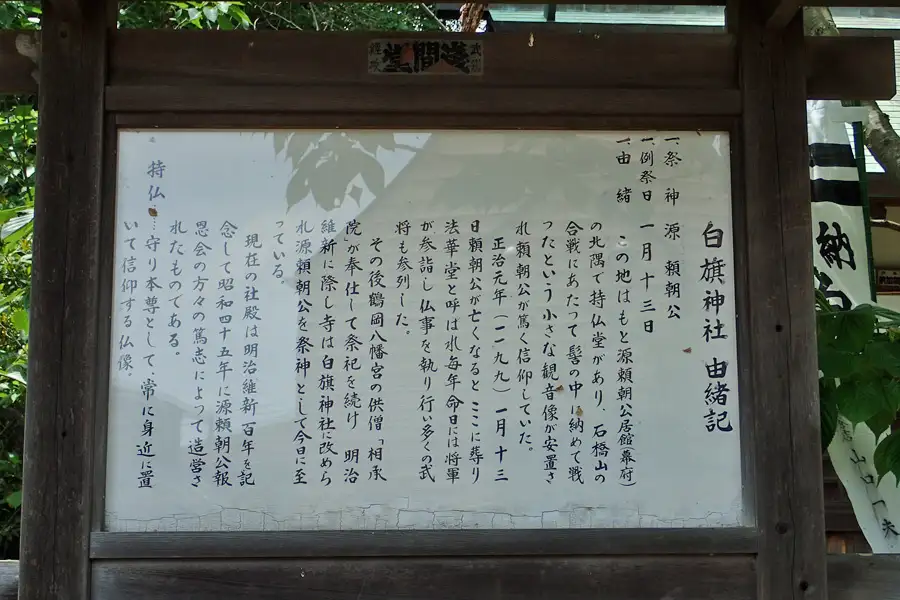 白旗神社 由緒記
一、祭神 源 頼朝公
一、例祭日 一月十三日
一、由緒
この地はもと源頼朝公居館(幕府)
の北隅で持仏堂があり、石橋山の
合戦にあたって髻の中に納めて戦
ったという小さな観音像が安置さ
れ頼朝公が篤く信仰していた。
正治元年(一一九九)一月十三
日頼朝公が亡くなるとここに葬り
法華堂と呼ばれ毎年命日には将軍
が参詣し仏事を執り行い多くの武
将も参列した。
その後鶴岡八幡宮の供僧「相承
院」が奉仕して祭祀を続け 明治
維新に際し寺は白旗神社に改めら
れ源頼朝公を祭神として今日に至
っている。
現在の社殿は明治維新百年を記
念して昭和四十五年に源頼朝公報
恩会の方々の篤志によって造営さ
れたものである。
持仏……守り本尊として、常に身近に置
いて信仰する仏像
納
山口一夫